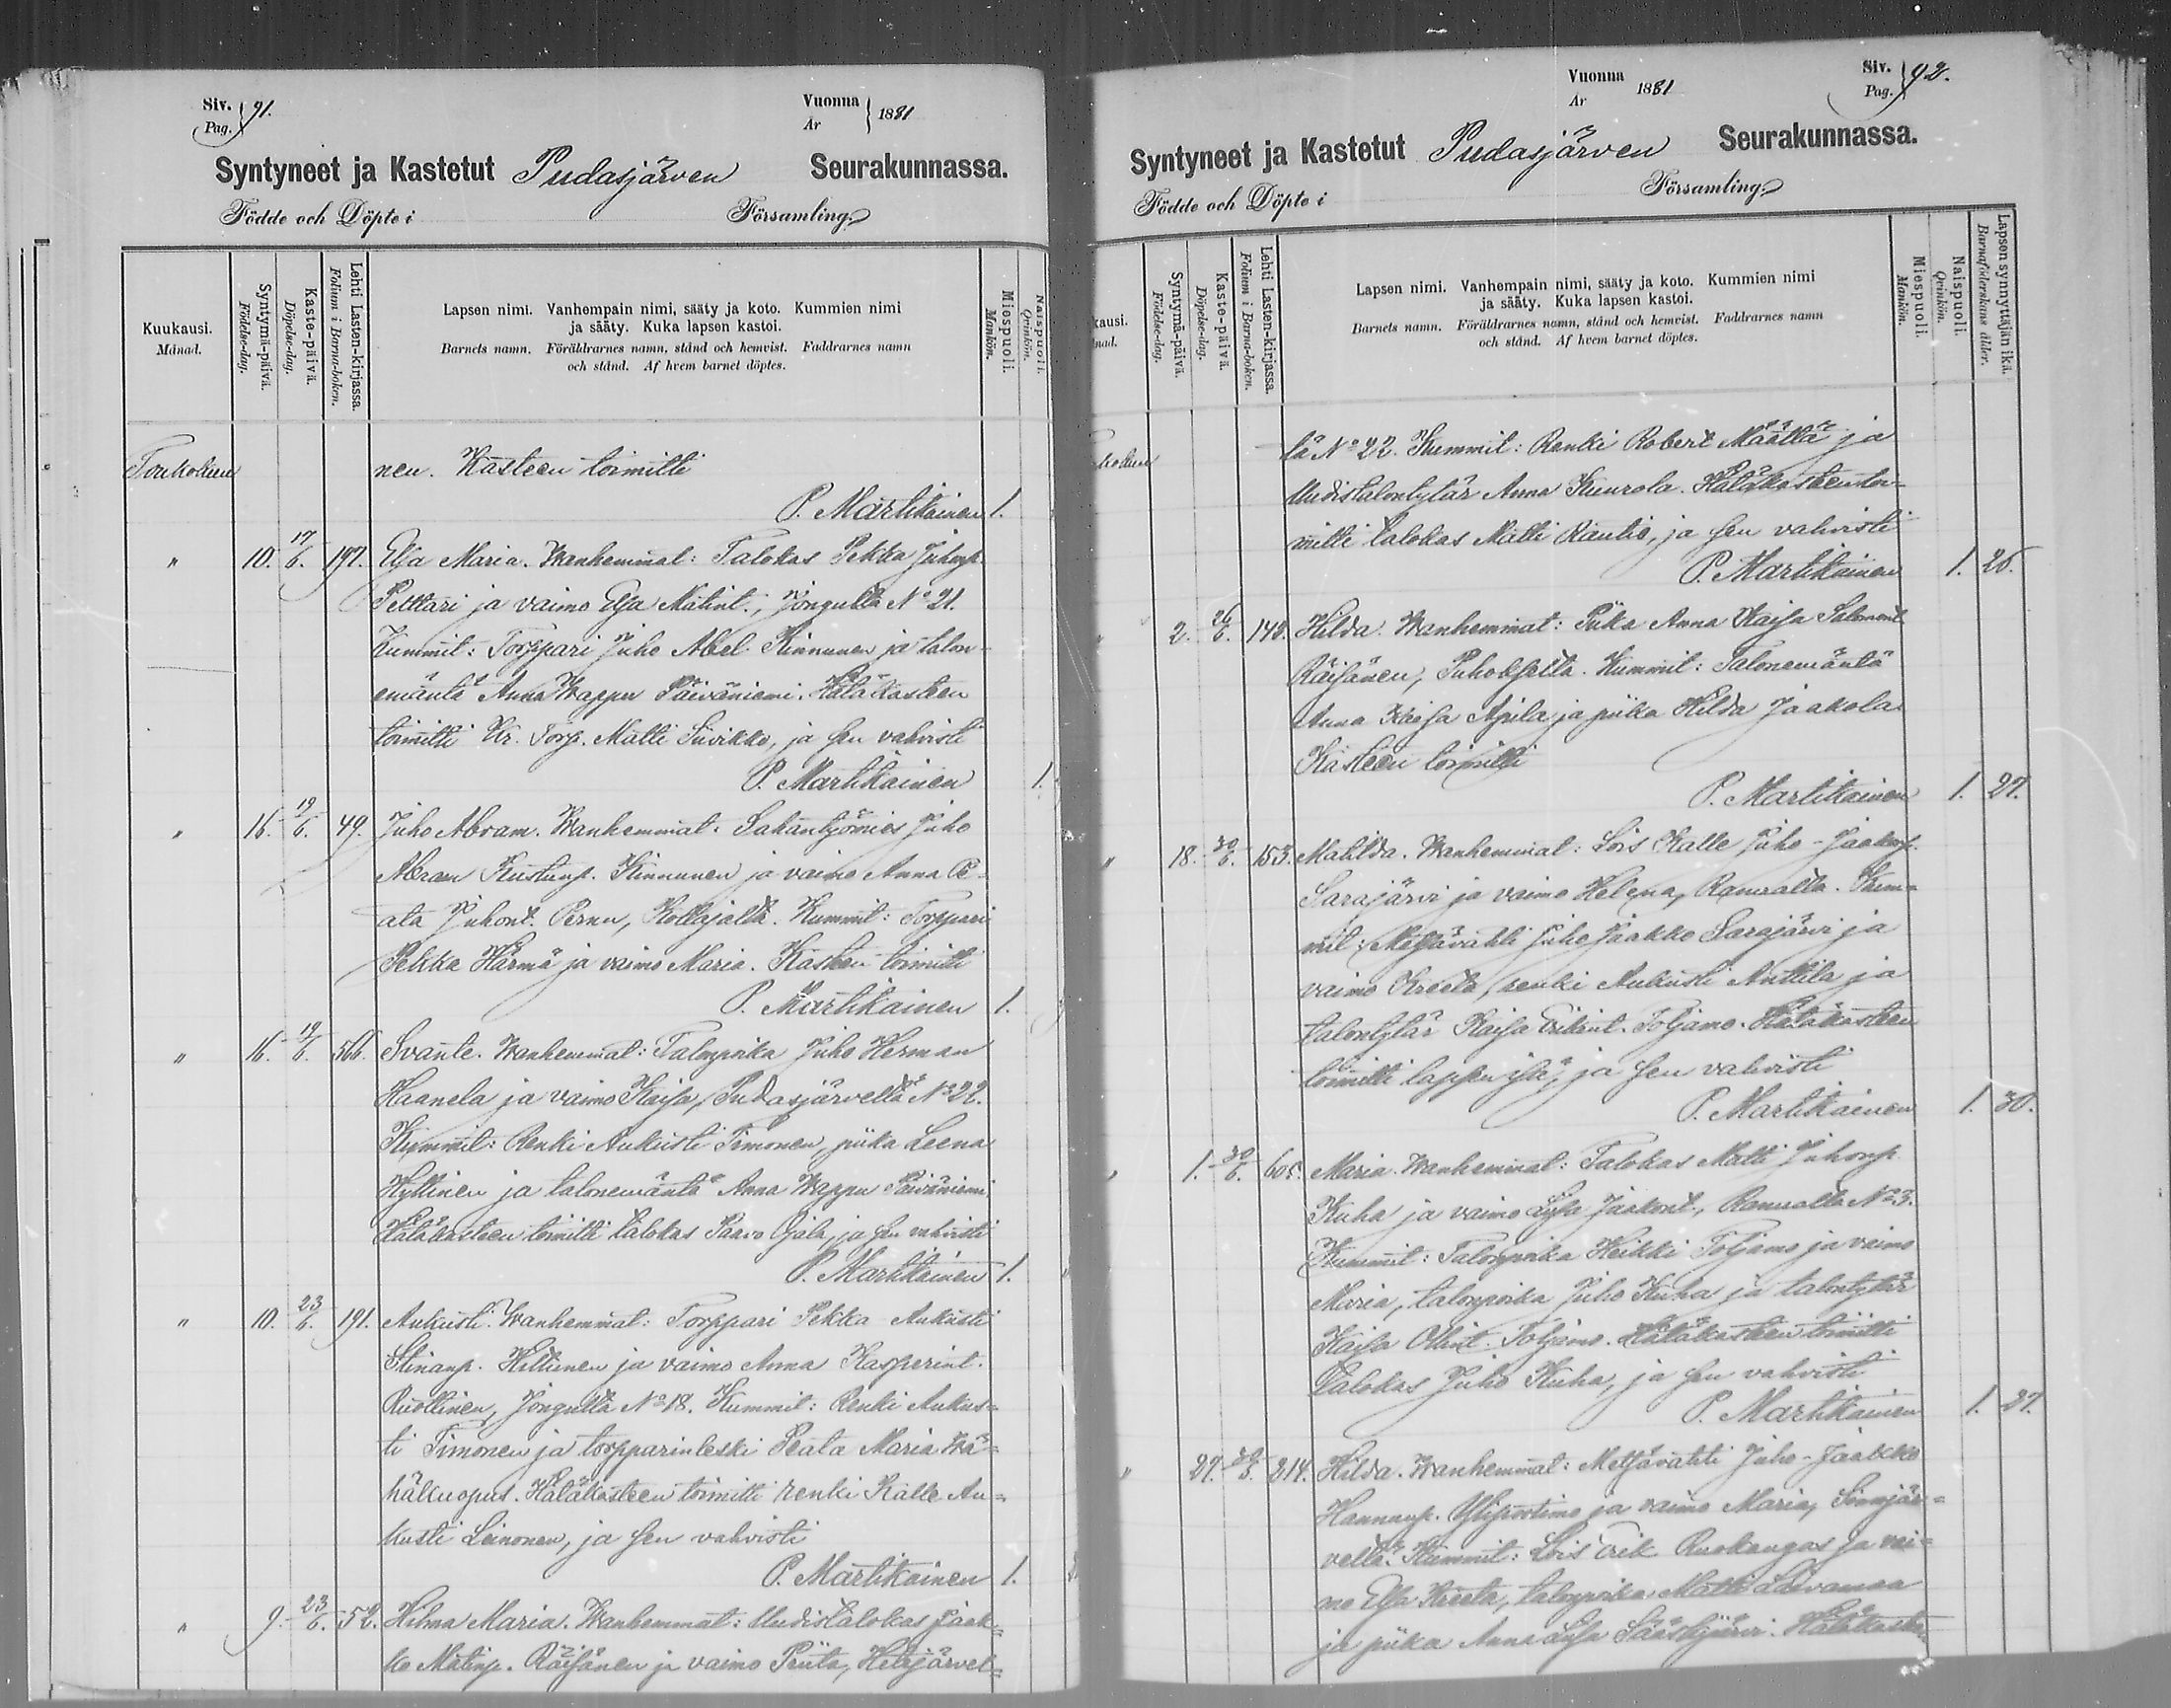 Siv. 91.
Pag.
Vuonna 1881
År
Syntyneet ja Kastetut Pudasjärven Seurakunnassa.
Födde och Döpte i Församling.
Kuukausi.
Månad.
Syntymä-päivä.
Födelse-dag.
Kaste-päivä.
Döpelse-dag.
Lehti Lasten-kirjassa.
Folium i Barna-boken.
Lapsen nimi. Vanhempain nimi, sääty ja koto. Kummien nimi
ja sääty. Kuka lapsen kastoi.
Barnets namn. Föräldrarnes namn, stånd och hemvist. Faddrarnes namn
och stånd. Af hvem barnet döptes.
Miespuoli.
Mankön.
Naispuoli.
Qvinkön.
Toukokuu nen. Kasteen toimitti
P. Martikainen 1.
" 10. 17/6. 197. Elsa Maria. Wanhemmat: Talokas Pekka Juhonp.
Petttari ja vaimo Elsa Matint., Jongulta No 21.
Kummit: Torppari Juho Abel Kinnunen ja talon-
emäntä Anna Wappu Päiväniemi. Hätäkasteen
toimitti Kr. Torp. Matti Siivikko, ja sen vahvisti
P. Martikainen 1.
" 16. 19/6. 49. Juho Abram. Wanhemmat: Sahantyömies Juho
Abram Kustunp. Kinnunen ja vaimo Anna Be-
ata Juhont. Pernu, Kollajalta. Kummit: Torppari
Pekka Härmä ja vaimo Maria. Kasteen toimitti
P. Martikainen 1.
" 16. 19/6. 566. Svante. Wanhemmat: Talonpoika Juho Herman
Haanela ja vaimo Kaisa, Pudasjärveltä No 22.
Kummit: Renki Aukusti Timonen, piika Leena
Hyttinen ja talonemäntä Anna Wappu Päiväniemi
Hätäkasteen toimitti talokas Paavo Ojala, ja sen vahvisti
P. Martikainen 1.
" 10. 23/6. 191. Aukusti. Wanhemmat: Torppari Pekka Aukusti
Stinanp. Hiltunen ja vaimo Anna Kasperint.
Ruottinen, Jongulta No 18. Kummit: Renki Aukus-
ti Timonen ja torpparinleski Beata Maria Wä-
häkuopus. Hätäkasteen toimitti renki Kalle Au-
kusti Leinonen, ja sen vahvisti
P. Martikainen 1.
" 9. 23/6. 52. Hilma Maria. Wanhemmat: Uudistalokas Jaak-
ko Matinp. Räisänen ja vaimo Priita, Hetejärvel-
Siv. 92.
Pag.
Vuonna 1881
År
Syntyneet ja Kastetut Pudasjärven Seurakunnassa.
Födde och Döpte i Församling.
kausi.
nad.
Syntymä-päivä.
Födelse-dag.
Kaste-päivä.
Döpelse-dag.
Lehti Lasten-kirjassa.
Folium i Barna-boken.
Lapsen nimi. Vanhempain nimi, sääty ja koto. Kummien nimi
ja sääty. Kuka lapsen kastoi.
Barnets namn. Föräldrarnes namn, stånd och hemvist. Faddrarnes namn
och stånd. Af hvem barnet döptes.
Miespuoli.
Mankön.
Naispuoli.
Qvinkön.
Lapsen synnyttäjän ikä.
Barnaföderskans ålder.
kokuu tä No 22. Kummit: Renki Robert Määttä ja
Uudistalontytär Anna Kuurola. Hätäkasteen toi-
mitti talokas Matti Rautio, ja sen vahvisti
P. Martikainen 1. 26.
" 2. 26/6. 148. Hilda. Wanhemmat: Piika Anna Kaisa Salomont.
Räisänen, Puhokselta. Kummit: Talonemäntä
Anna Kaisa Apila ja piika Hilda Jaakola
Kasteen toimitti
P. Martikainen 1. 27.
" 18. 30/6. 153. Matilda. Wanhemmat: Lois Kalle Juho-Jaakonp.
Sarajärvi ja vaimo Helena, Ranualta. Kum-
mit: Metsävahti Juho Jaakko Sarajärvi ja
vaimo Kreeta, renki Aukusti Anttila ja
talontytär Kaisa Erkint. Toljamo. Hätäkasteen
toimitti lapsen isä, ja sen vahvisti
P. Martikainen 1. 30.
" 1. 30/6. 605. Maria. Wanhemmat: Talokas Matti Juhonp.
Kuha ja vaimo Liisa Jaakont., Ranualta No 3.
Kummit: Talonpoika Heikki Toljamo ja vaimo
Maria, talonpoika Juho Kuha ja talontytär
Kaisa Ollint. Toljamo. Hätäkasteen toimitti
Talokas Juho Kuha, ja sen vahvisti
P. Martikainen 1. 27.
" 27. 214. Hilda. Wanhemmat: Metsävahti Juho-Jaakko
Hannunp. Yliportimo ja vaimo Maria, Simojär-
veltä. Kummit: Lois Erik Ruokangas ja vai-
mo Elsa Kreeta, talonpoika Matti Laivamaa
ja piika Anna Liisa Sääskijärvi. Hätäkaste-